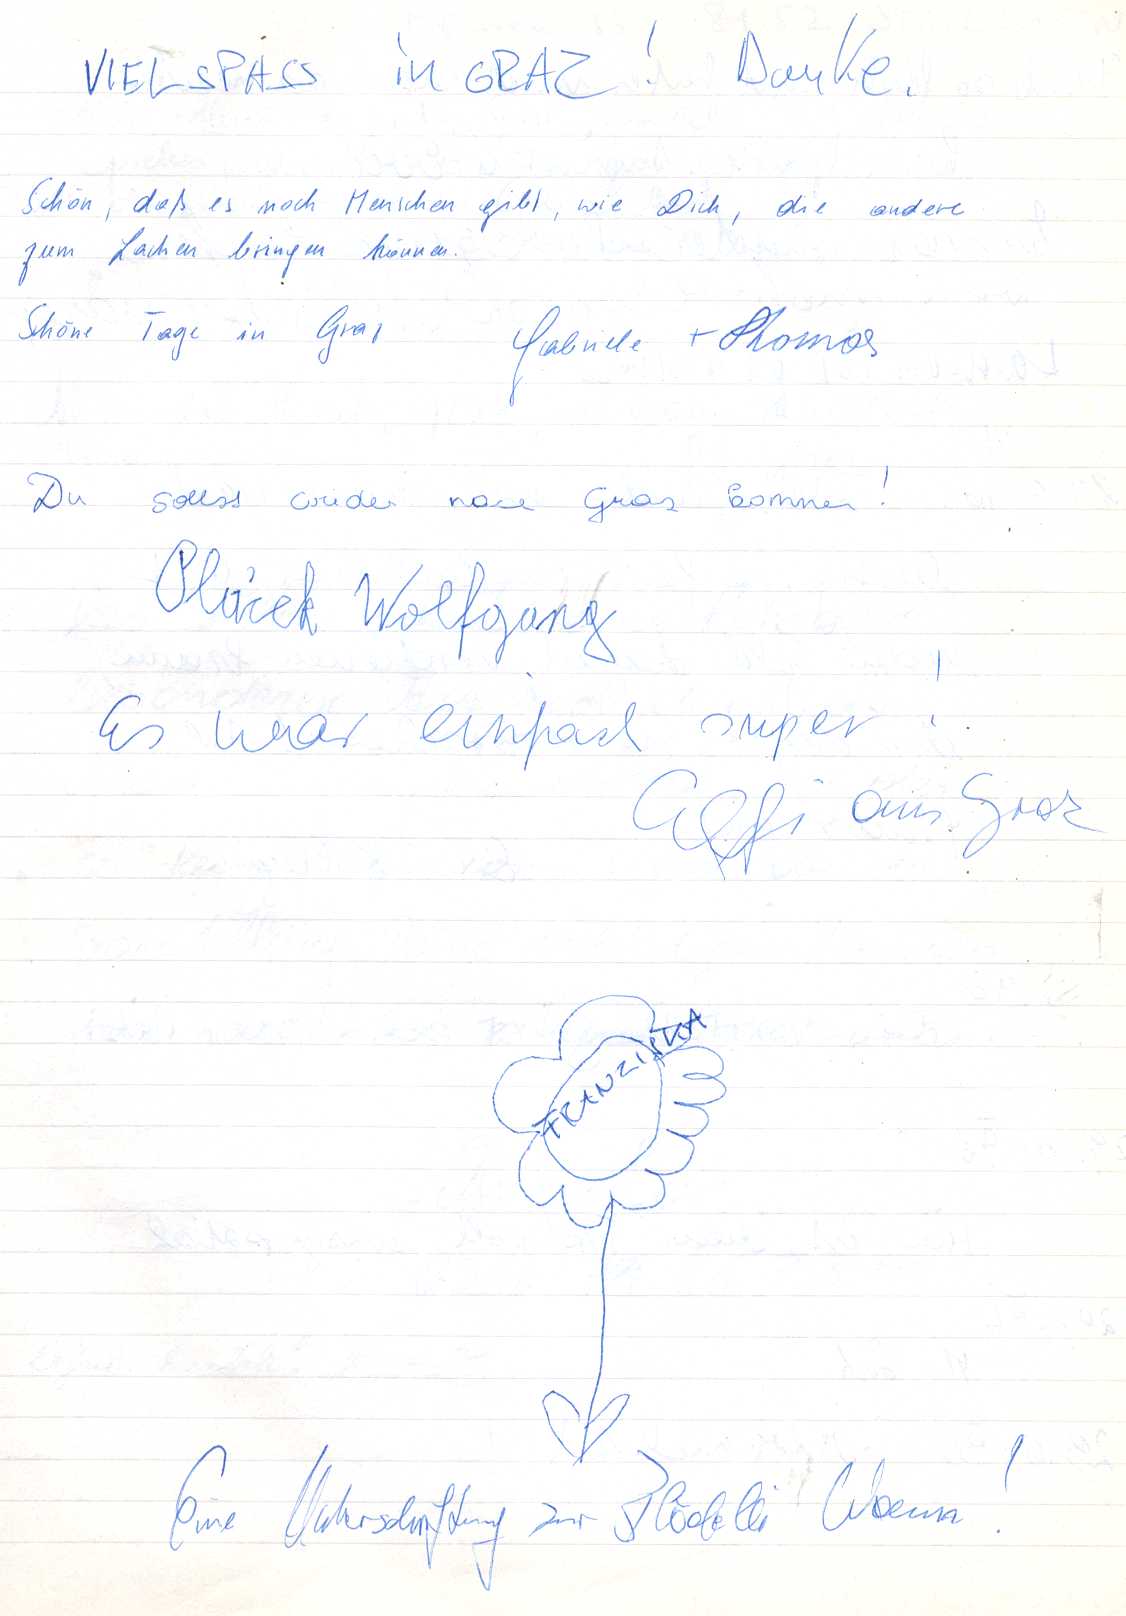 VIEL SPASS in GRAZ! Danke.
Schön, daß es noch Menschen gibt, wie Dich, die andere
zum Lachen bringen können.
Schöne Tage in Graz Gabriele + Thomas
Du sollst wieder nach Graz kommen!
Wolfgang
Es war einfach super!
aus Graz
FRANZISKA
Eine zur